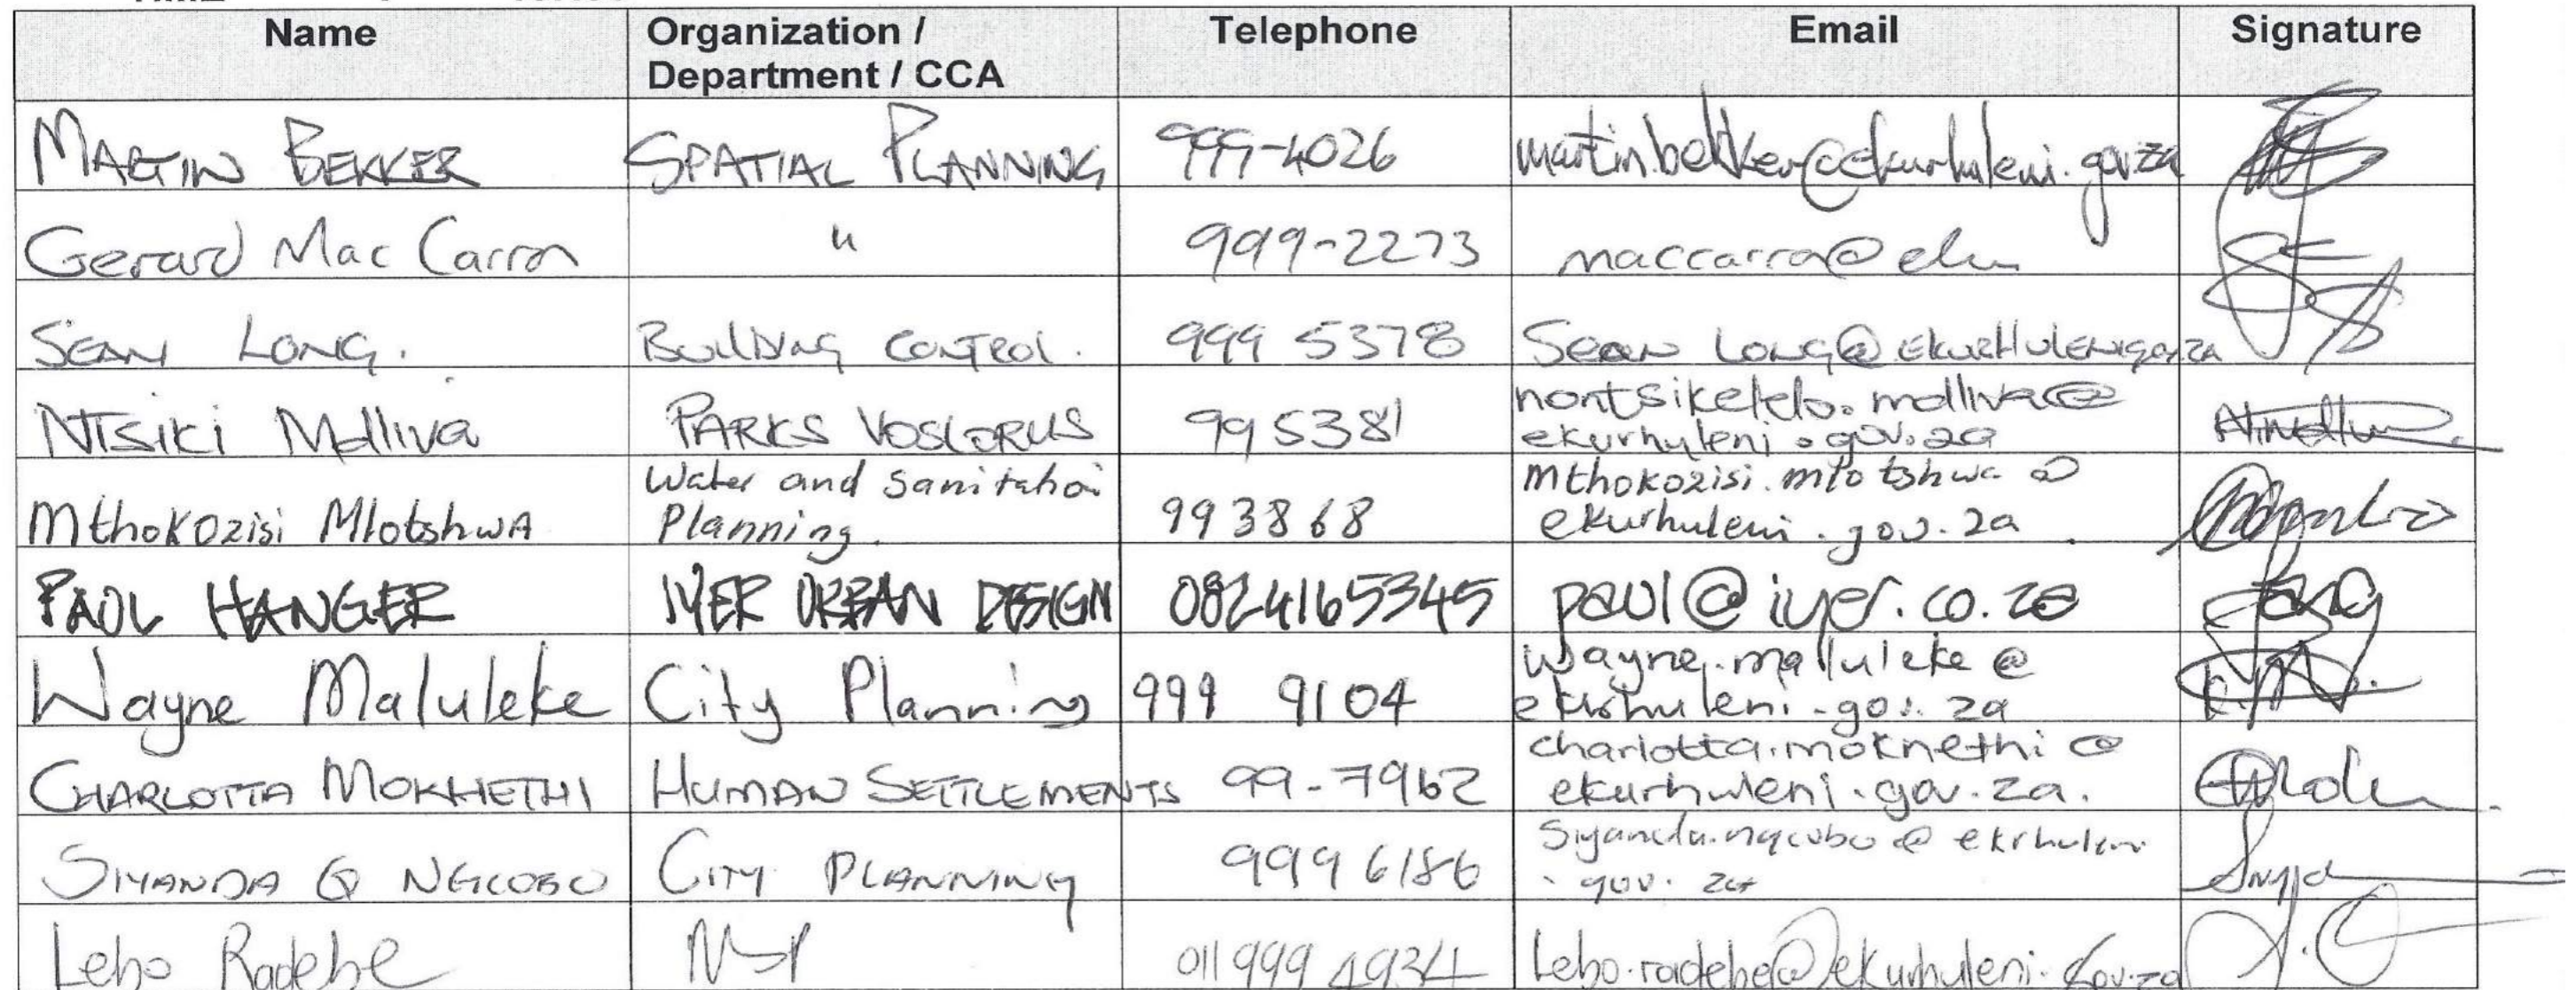 Name Organization / Telephone Email Signature
Department / CCA
MARTIN BEKKER SPATIAL PLANNING 999-4026 martin.bekker@ekurhuleni.gov.za
Gerard Mac Carron " 999-2273 maccarro@eku
SEAN LONG. BUILDING CONTROL. 999 5378 Sean Long@EKURHULENI.gov.za
NTSIKI Mdlliva PARKS VOSLORUS 99 5381 nontsikelelo.mdlliva@
ekurhuleni.gov.za
Mthokozisi MlotshwA Water and Sanitation 993868 mthokozisi.mlotshwa@
Planning. ekurhuleni.gov.za
PAUL HANGER IYER URBAN DESIGN 0824165345 paul@iyer.co.za
Wayne Maluleke City Planning 999 9104 Wayne.malluleke@
ekurhuleni.gov.za
CHARLOTTA MOKHETHI HUMAN SETTLEMENTS 99-7962 charlotta.moknethi@
ekurhuleni.gov.za.
SIYANDA Q NGCOBO CITY PLANNING 999 6186 Siyanda.ngcobo@ekrhuleni
.gov.za
Lebo Radebe 011 999 4934 Lebo.radebe@ekurhuleni.gov.za